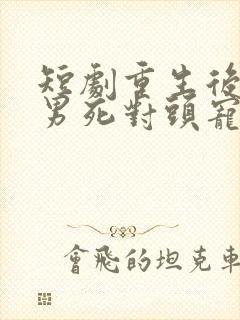 短劇重生後
男死對頭寵
會飛的坦克車